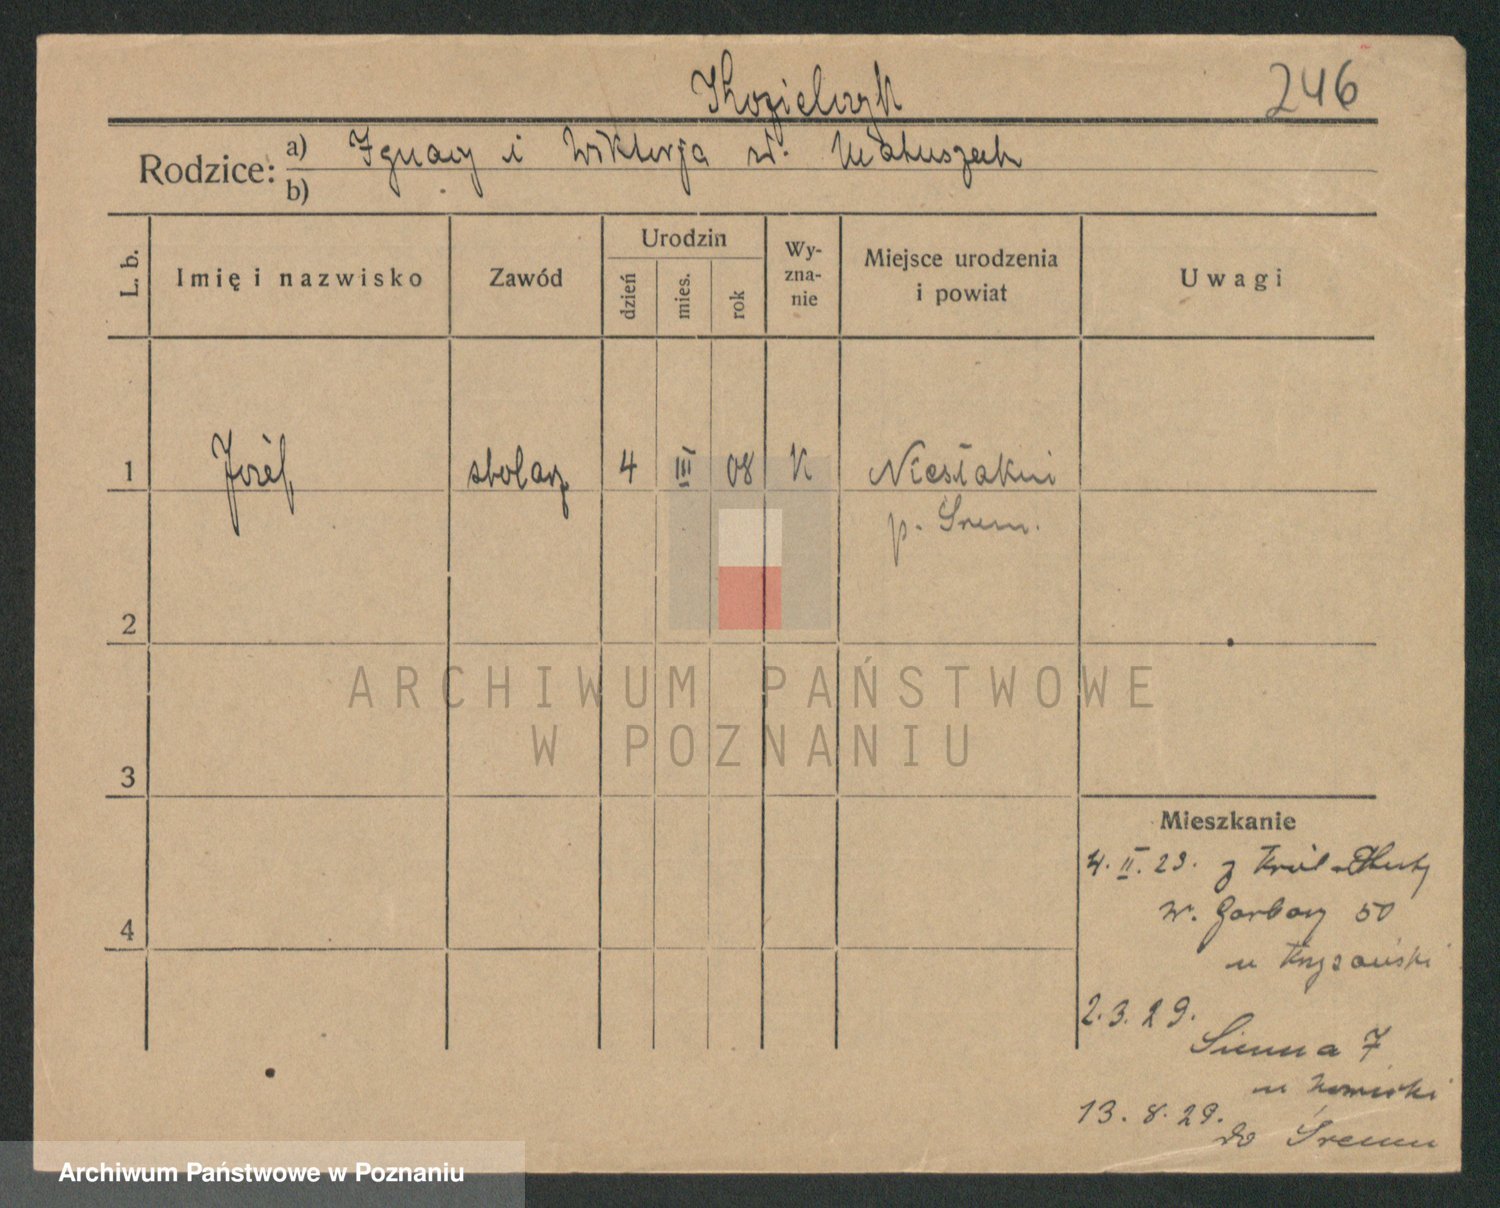 Kozielczyk
246
Rodzice: a) Ignacy i Wiktorja zd. Matuszczak
b)
L. b.
Imię i nazwisko
Zawód
Urodzin
dzień
mies.
rok
Wy-
zna-
nie
Miejsce urodzenia
i powiat
Uwagi
1 Józef stolarz 4 III 08 K Niesłabin
p. Śrem.
2
3
4
ARCHIWUM PAŃSTWOWE
W POZNANIU
Mieszkanie
4. II. 29. z Król-Huty
w. Garbary 50
u
2.3.29.
Sienna 7
u
13.8.29.
do Śremu
Archiwum Państwowe w Poznaniu